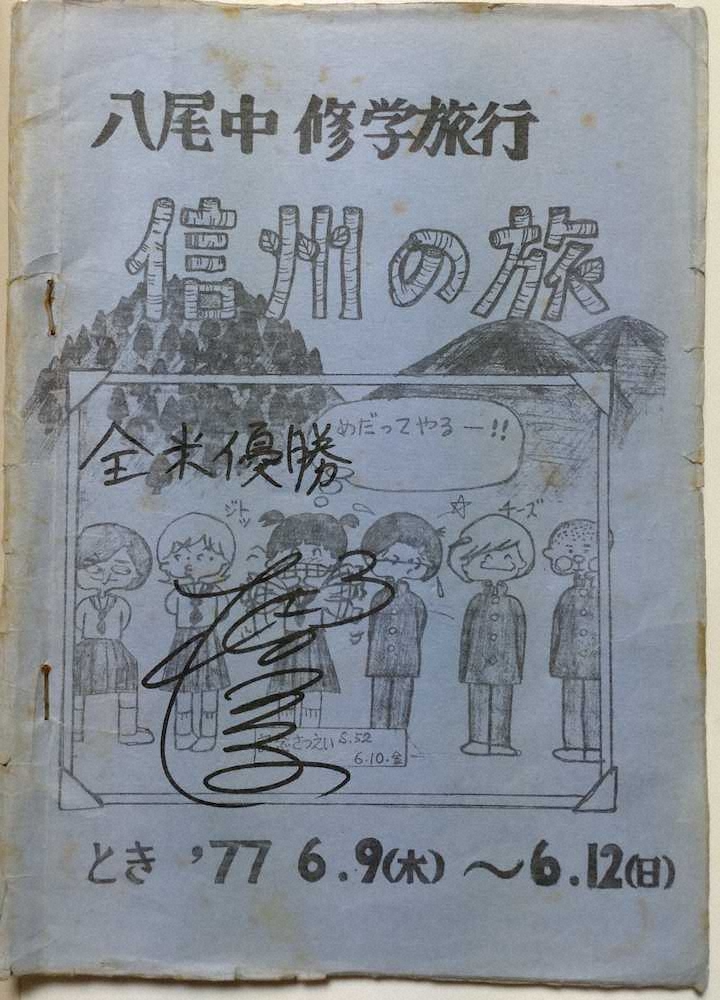 八尾中 修学旅行
信州の旅
めだってやるー!!
全米優勝
ジトッ
チーズ
さつえい S.52
6.10.金
とき '77 6.9(木)〜6.12(日)